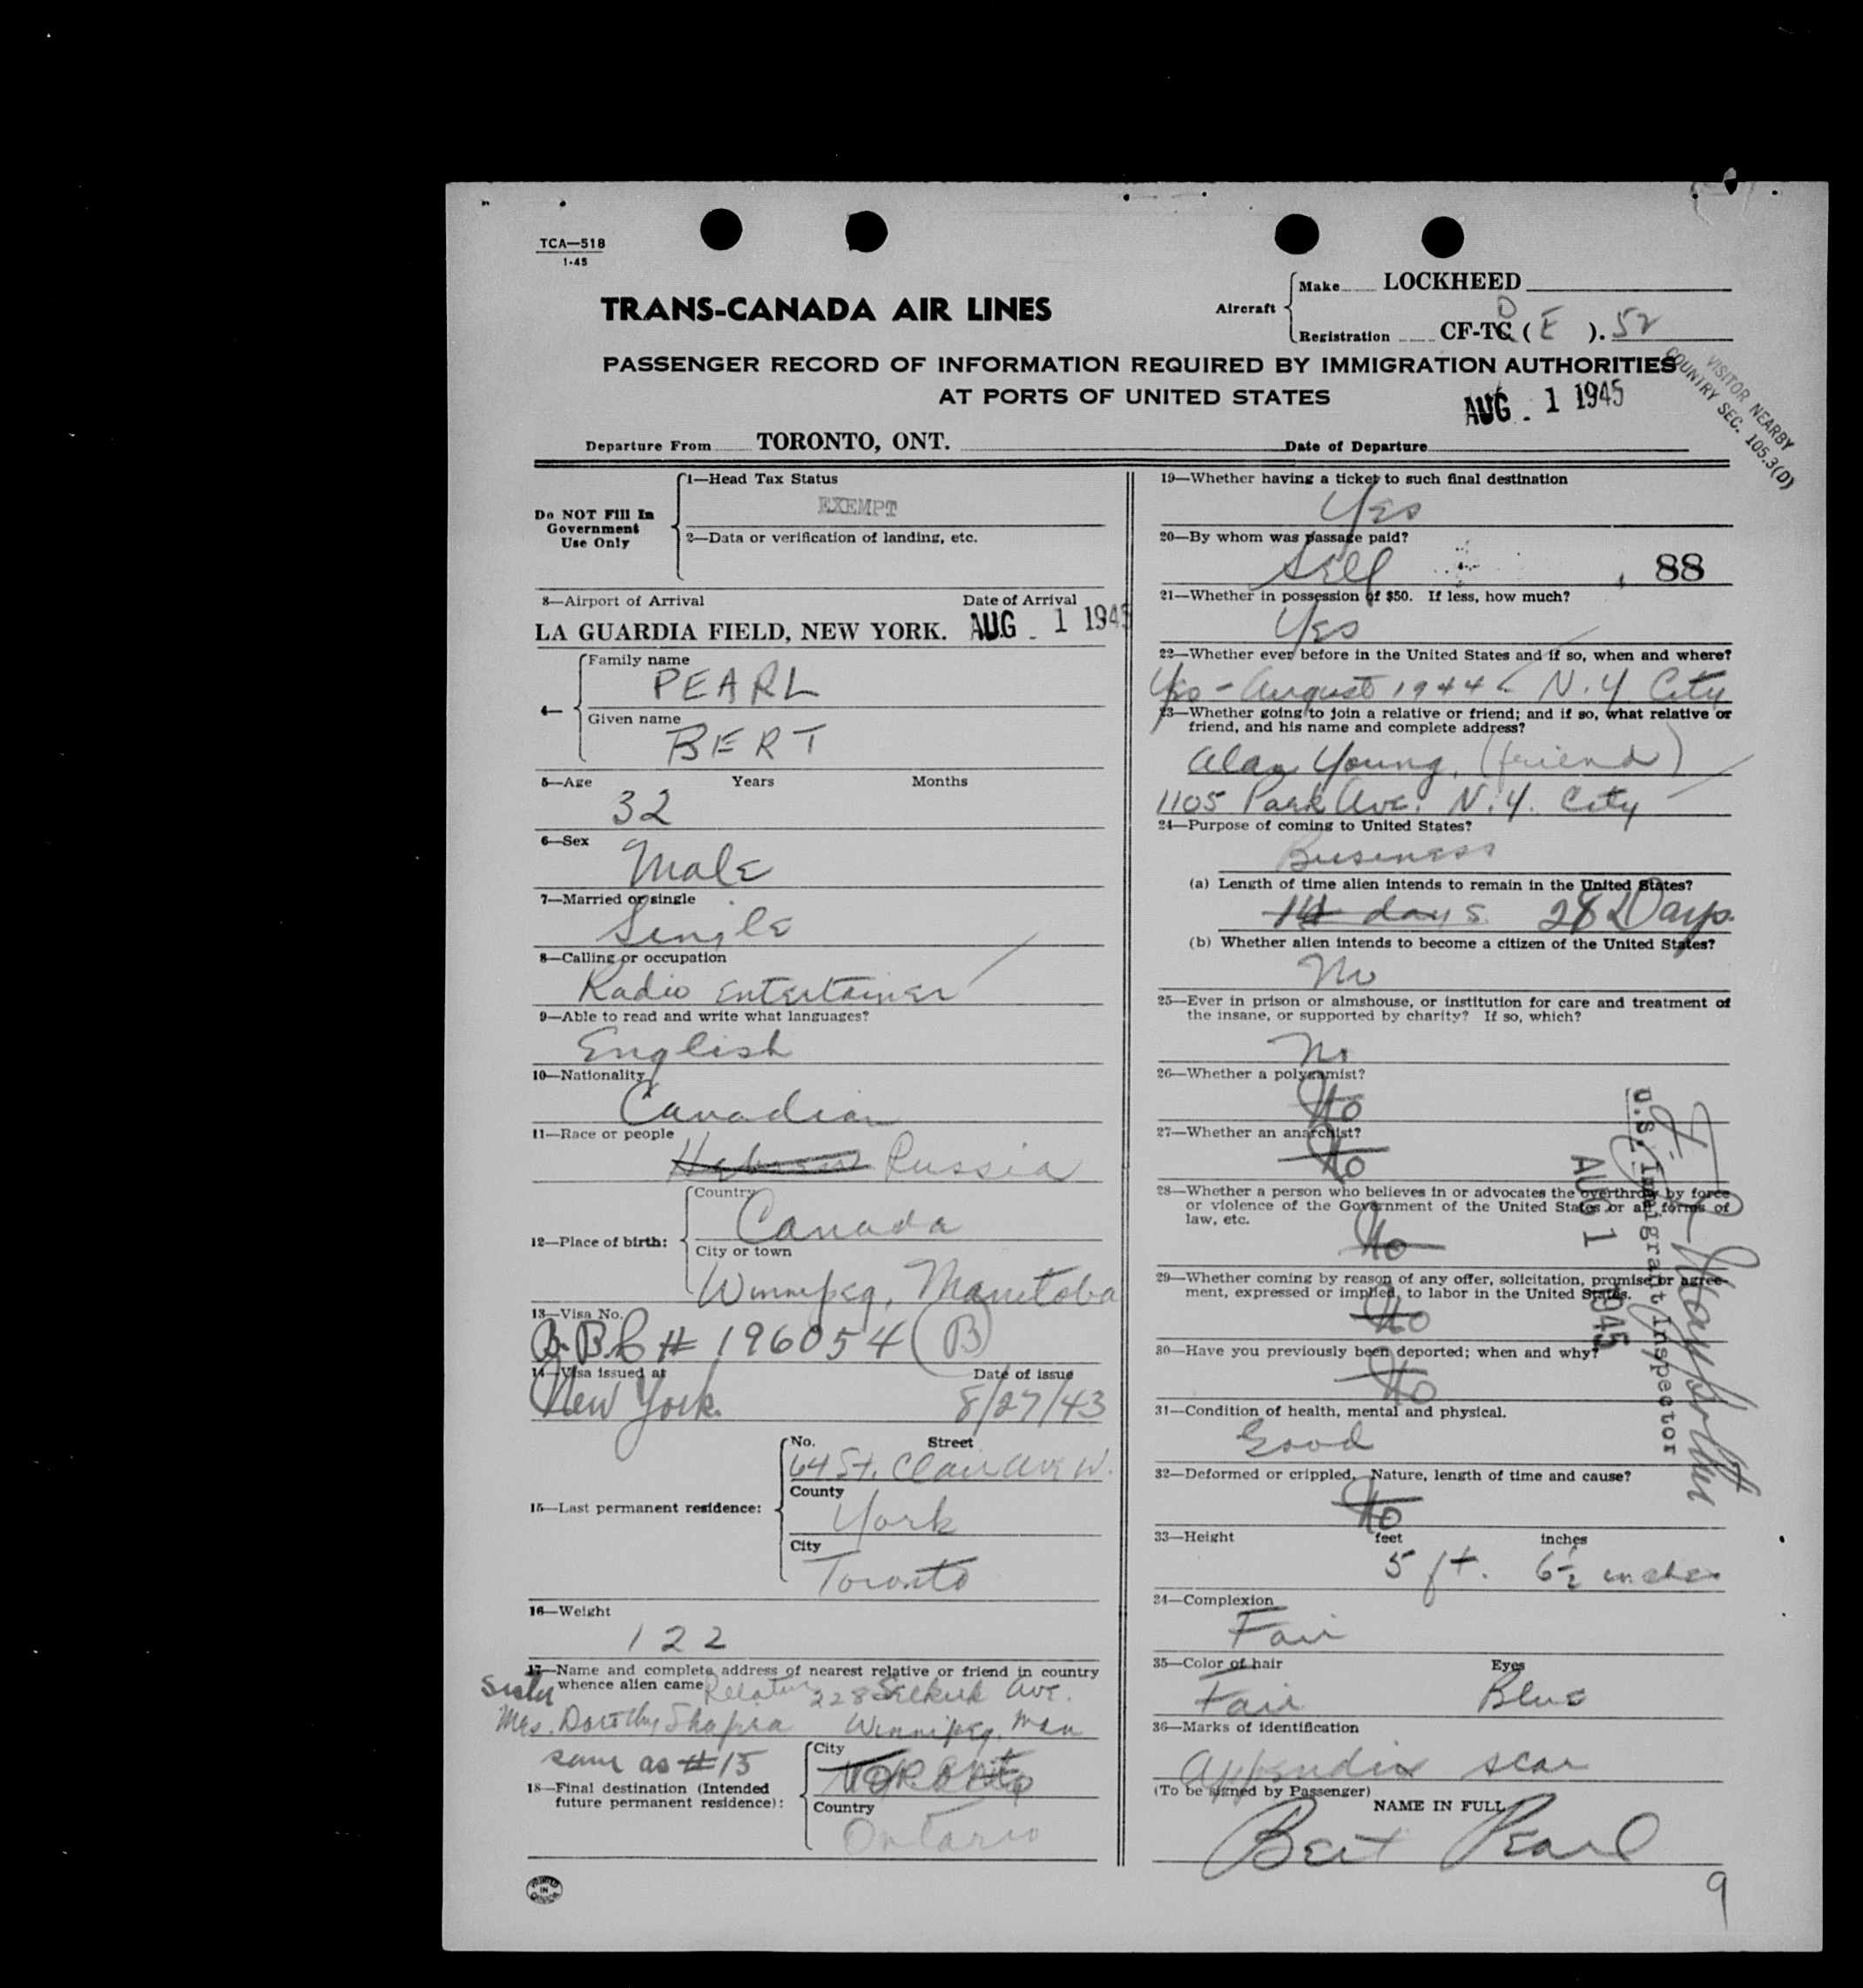 TCA—518
1-45
TRANS-CANADA AIR LINES
Aircraft
Make LOCKHEED
Registration CF-TC D ( E ). 52
PASSENGER RECORD OF INFORMATION REQUIRED BY IMMIGRATION AUTHORITIES
AT PORTS OF UNITED STATES
AUG. 1 1945
VISITOR NEARBY
COUNTRY SEC. 105.3(D)
Departure From TORONTO, ONT. Date of Departure
Do NOT Fill In
Government
Use Only
1—Head Tax Status
EXEMPT
2—Data or verification of landing, etc.
3—Airport of Arrival Date of Arrival
LA GUARDIA FIELD, NEW YORK. AUG. 1 1945
4—
Family name
PEARL
Given name
BERT
5—Age Years Months
32
6—Sex
Male
7—Married or single
Single
8—Calling or occupation
Radio Entertainer
9—Able to read and write what languages?
English
10—Nationality
Canadian
11—Race or people
Hebrew Russia
12—Place of birth:
Country
Canada
City or town
Winnipeg, Manitoba
13—Visa No.
B.B.C # 196054 (B)
14—Visa issued at Date of issue
New York. 8/27/43
15—Last permanent residence:
No. Street
64 St. Clair Ave W.
County
York
City
Toronto
16—Weight
122
17—Name and complete address of nearest relative or friend in country
whence alien came
Sister 228 Selkirk Ave.
Mrs. Dorothy Shapira Winnipeg, Man
same as #15
18—Final destination (Intended
future permanent residence):
City
Toronto
Country
Ontario
19—Whether having a ticket to such final destination
Yes
20—By whom was passage paid?
Self 88
21—Whether in possession of $50. If less, how much?
Yes
22—Whether ever before in the United States and if so, when and where?
Yes - August 1944 - N.Y City
23—Whether going to join a relative or friend; and if so, what relative or
friend, and his name and complete address?
Alan Young, (friend)
1105 Park Ave. N.Y. City
24—Purpose of coming to United States?
Business
(a) Length of time alien intends to remain in the United States?
14 days 28 Days.
(b) Whether alien intends to become a citizen of the United States?
No
25—Ever in prison or almshouse, or institution for care and treatment of
the insane, or supported by charity? If so, which?
No
26—Whether a polygamist?
No
27—Whether an anarchist?
No
28—Whether a person who believes in or advocates the overthrow by force
or violence of the Government of the United States or all forms of
law, etc.
No
29—Whether coming by reason of any offer, solicitation, promise or agree-
ment, expressed or implied, to labor in the United States.
No
30—Have you previously been deported; when and why?
No
31—Condition of health, mental and physical.
Good
32—Deformed or crippled. Nature, length of time and cause?
No
33—Height feet inches
5 ft. 6½ inches
34—Complexion
Fair
35—Color of hair Eyes
Fair Blue
36—Marks of identification
appendix scar
(To be signed by Passenger)
NAME IN FULL
Bert Pearl
AUG 1 1945
U.S. Immigrant Inspector
9
PRINTED
IN
CANADA